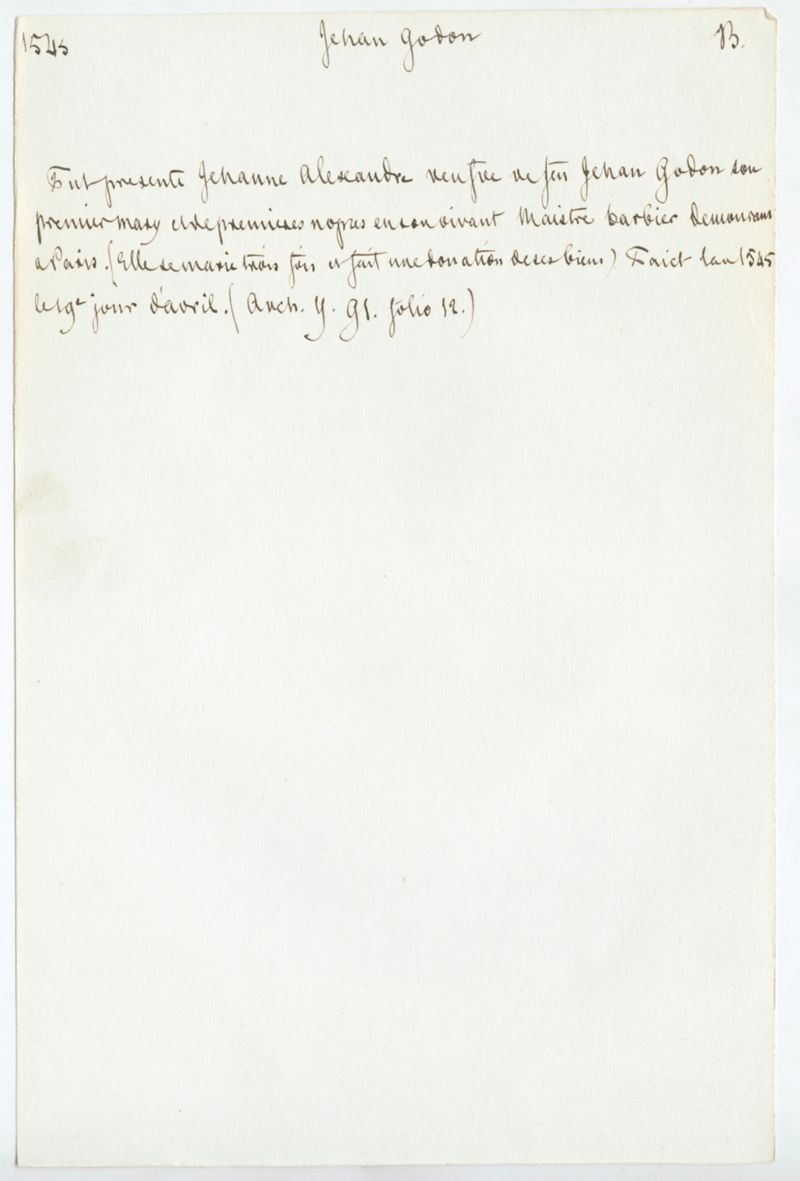 1545 Jehan Godon B.
Fut presente Jehanne Alexandre veufve de feu Jehan Godon son
premier mary et de premieres nopces en son vivant Maistre barbier demourant
a Paris. (Elle se marie trois fois et fait une donation de ses biens) Faict lan 1545
le 19e jour d'avril. (Arch. Y. 91. folio 12.)